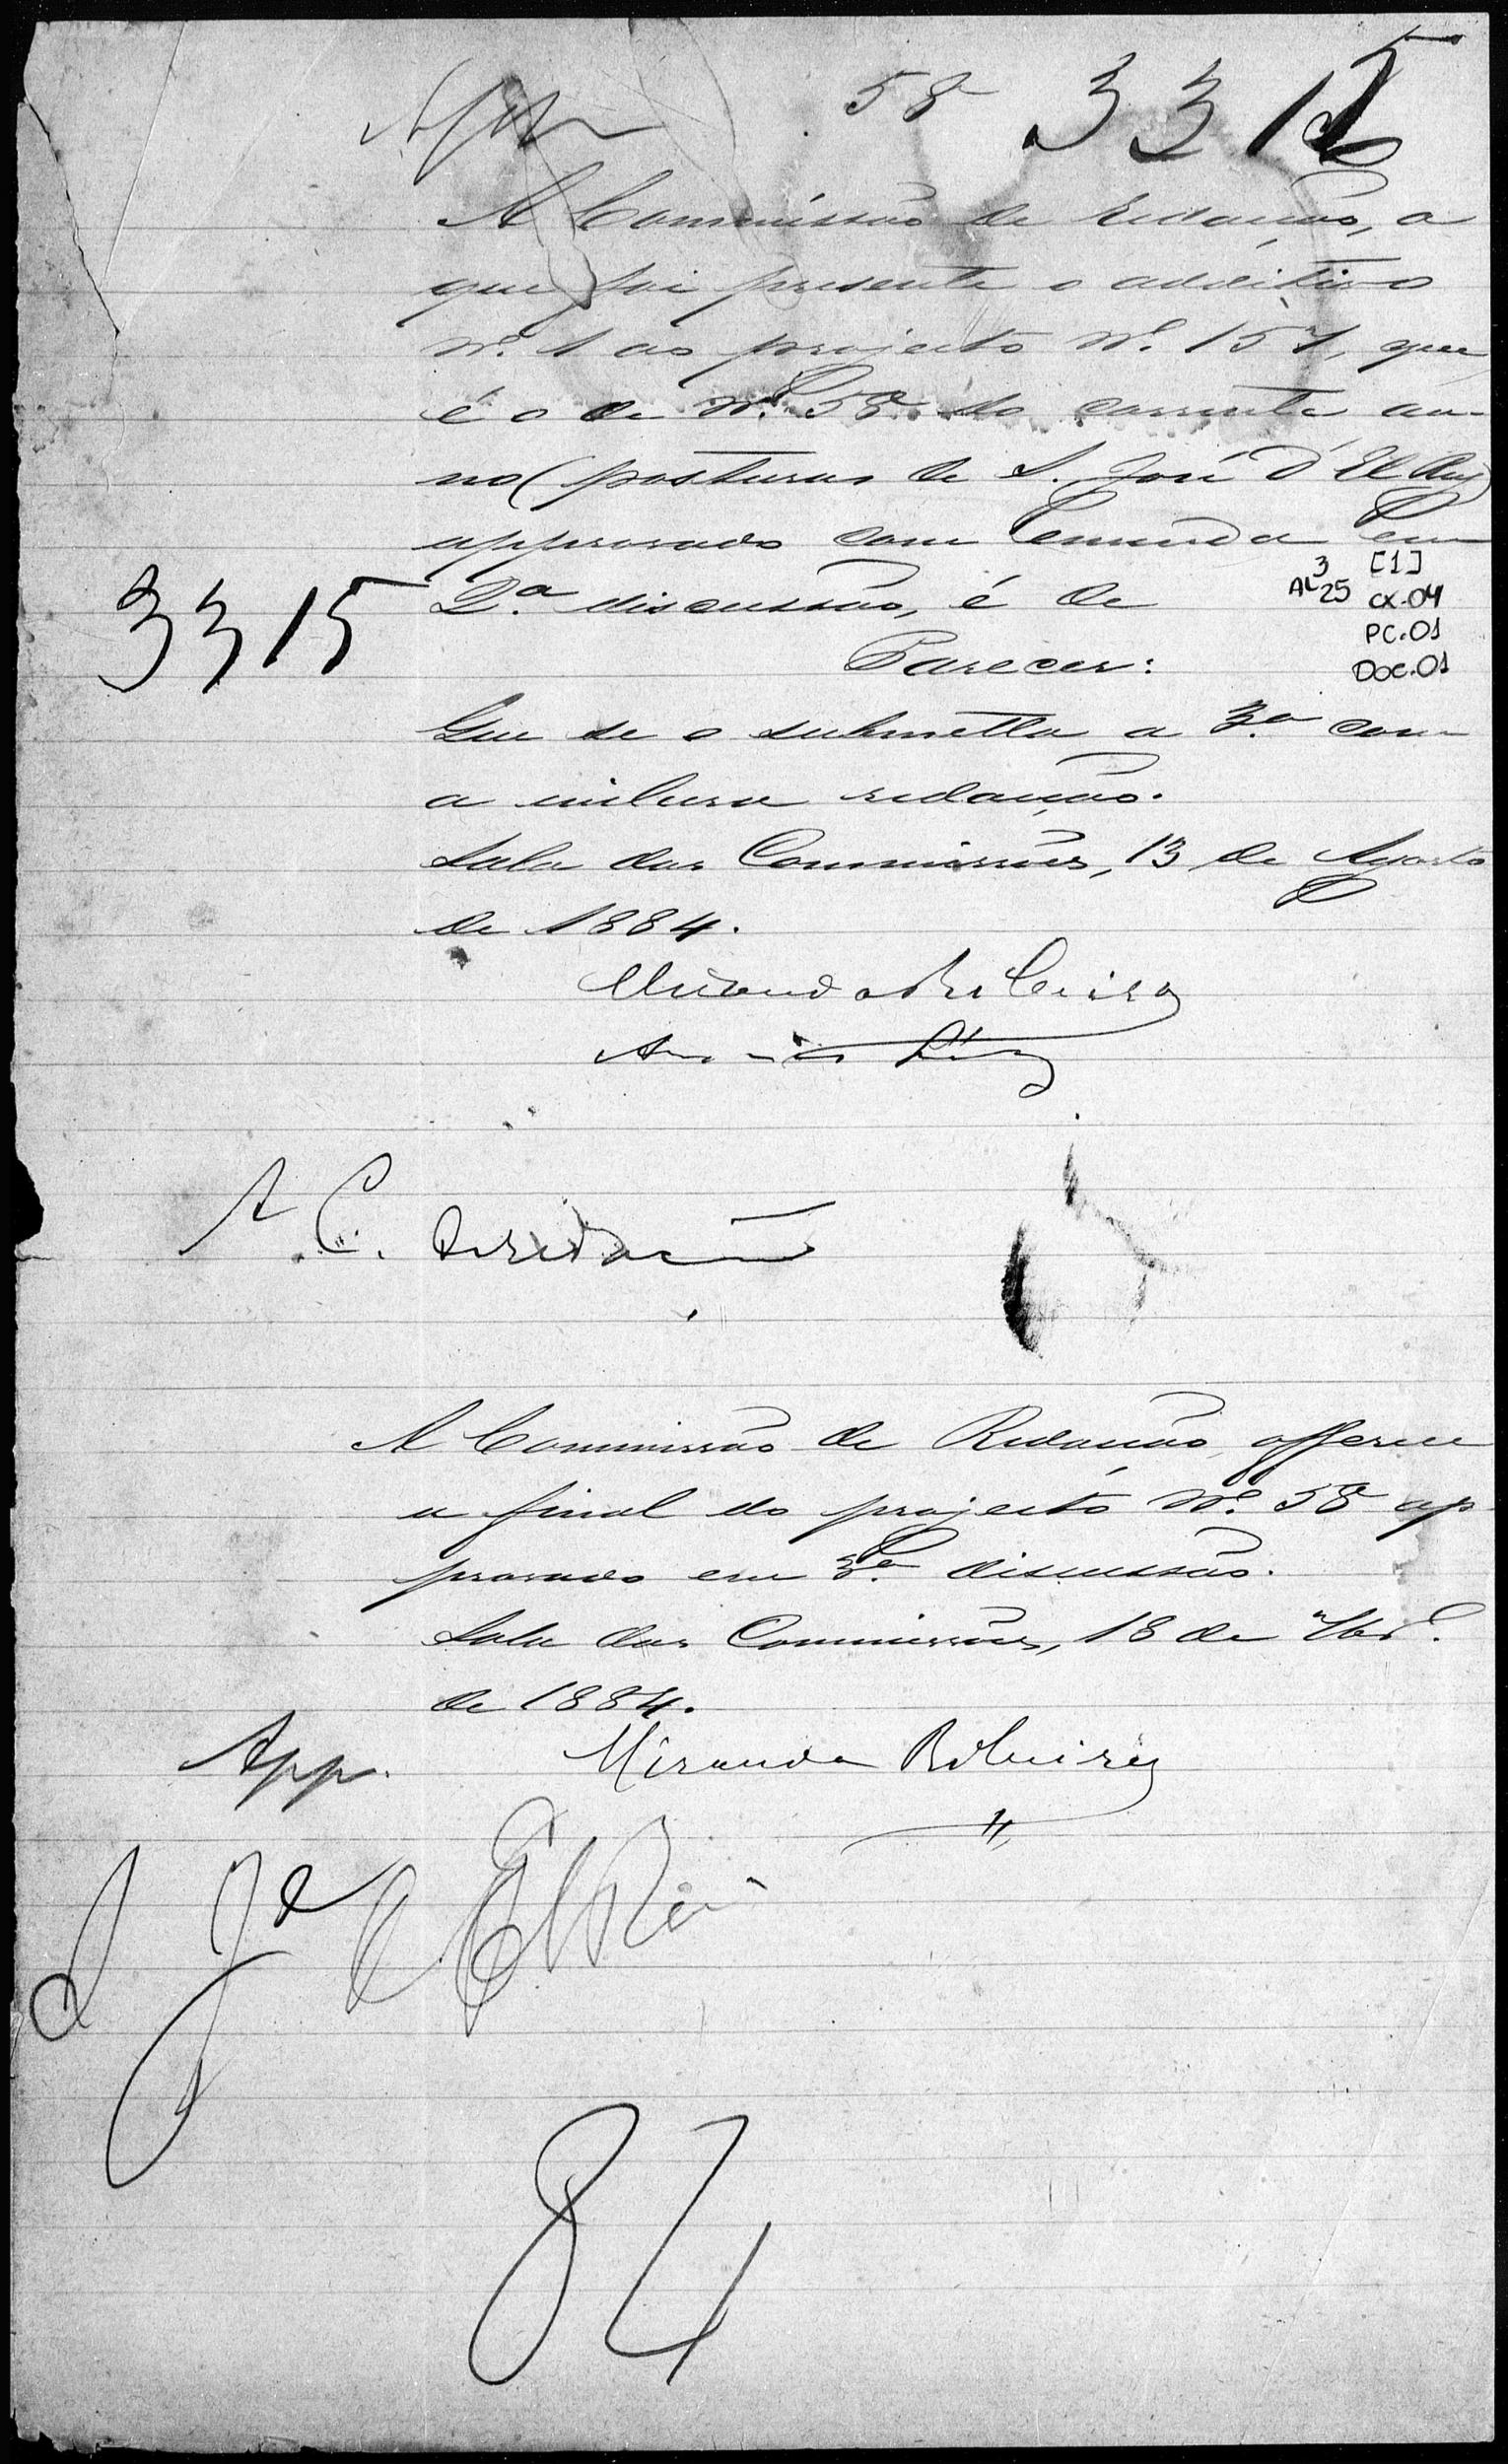 58 3315
A Commissão de redacção, a
que foi presente o additivo
Nº. 1 ao projecto Nº. 157, que
é o de Nº 58 do corrente an-
no (posturas de S. José d'El Rey)
approvado com emenda em
2.ª discussão, é de
3315
AL3 25
[1]
CX-04
PC.01
DOC.01
Parecer:
Que se o submetta a 3.ª com
a inclusa redacção.
Sala das Commissões, 13 de Agosto
de 1884.
Miranda Ribeiro
A C. de redacção
A Commissão de Redacção offerece
a final do projecto Nº. 58 ap-
provado em 3.ª discussão.
Sala das Commissões, 18 de
de 1884.
App. Miranda Ribeiro
S José d'El Rei
84